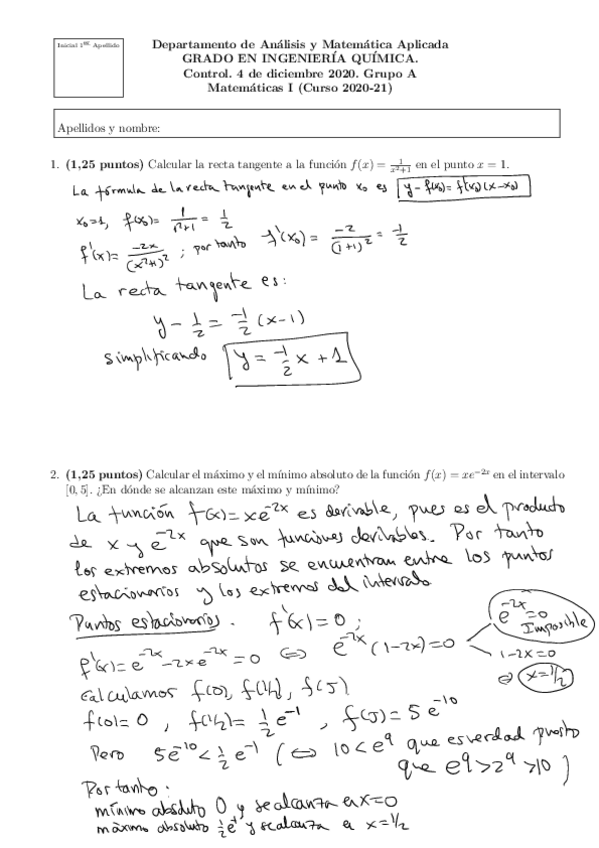 Inicial 1er Apellido
Departamento de Análisis y Matemática Aplicada
GRADO EN INGENIERÍA QUÍMICA.
Control. 4 de diciembre 2020. Grupo A
Matemáticas I (Curso 2020-21)
Apellidos y nombre:
1. (1,25 puntos) Calcular la recta tangente a la función f(x) = 1/(x²+1) en el punto x = 1.
La fórmula de la recta tangente en el punto x₀ es y - f(x₀) = f'(x₀)(x-x₀)
x₀=1, f(x₀) = 1/(1²+1) = 1/2
f'(x) = -2x/(x²+1)² ; por tanto f'(x₀) = -2/(1+1)² = -1/2
La recta tangente es:
y - 1/2 = -1/2 (x-1)
simplificando y = -1/2 x + 1
2. (1,25 puntos) Calcular el máximo y el mínimo absoluto de la función f(x) = xe⁻²ˣ en el intervalo
[0, 5]. ¿En dónde se alcanzan este máximo y mínimo?
La función f(x) = xe⁻²ˣ es derivable, pues es el producto
de x y e⁻²ˣ que son funciones derivables. Por tanto
los extremos absolutos se encuentran entre los puntos
estacionarios y los extremos del intervalo.
Puntos estacionarios. f'(x) = 0 ;
e⁻²ˣ = 0
Imposible
f'(x) = e⁻²ˣ - 2xe⁻²ˣ = 0 ⇔ e⁻²ˣ (1-2x) = 0
1-2x=0
⇒ x=1/2
Calculamos f(0), f(1/2), f(5)
f(0) = 0 , f(1/2) = 1/2 e⁻¹ , f(5) = 5 e⁻¹⁰
Pero 5e⁻¹⁰ < 1/2 e⁻¹ (⇔ 10 < e⁹ que es verdad puesto
que e⁹ > 2⁹ > 10 )
Por tanto:
mínimo absoluto 0 y se alcanza en x=0
máximo absoluto 1/2 e⁻¹ y se alcanza en x=1/2